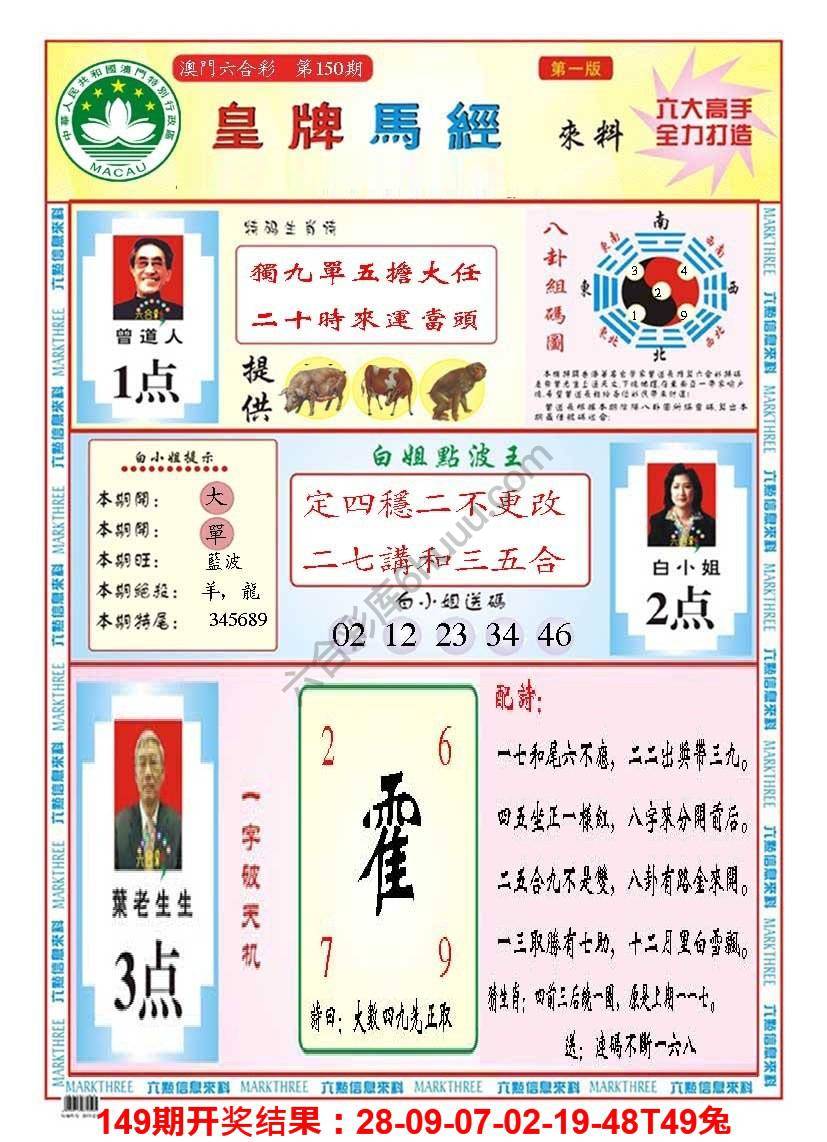 澳門六合彩 第150期
第一版
中華人民共和國澳門特別行政區
MACAU
皇牌馬經
來料
六大高手
全力打造
曾道人
1点
特码生肖诗
獨九單五擔大任
二十時來運當頭
提供
八卦組碼圖
南
東南
西南
東
西
東北
西北
北
3 4
2
9 1
白小姐提示
本期開： 大
本期開： 單
本期旺： 藍波
本期絕殺： 羊，龍
本期特尾： 345689
白姐點波王
定四穩二不更改
二七講和三五合
白小姐送碼
02 12 23 34 46
白小姐
2点
葉老生生
3点
一字破天机
2 6
霍
7 9
詩曰：大數四九先正取
配詩：
一七和尾六不應，二二出與帶三九。
四五坐正一樣紅，八字來分開前后。
二五合九不是雙，八卦有路金來開。
一三取勝有七助，十二月里白雪飄。
猜生肖：四前三后繞一圈，原是上期一一七。
送：連碼不斷一六八
MARKTHREE 六點信息來料
六合彩库6huuu.com
149期开奖结果：28-09-07-02-19-48T49兔